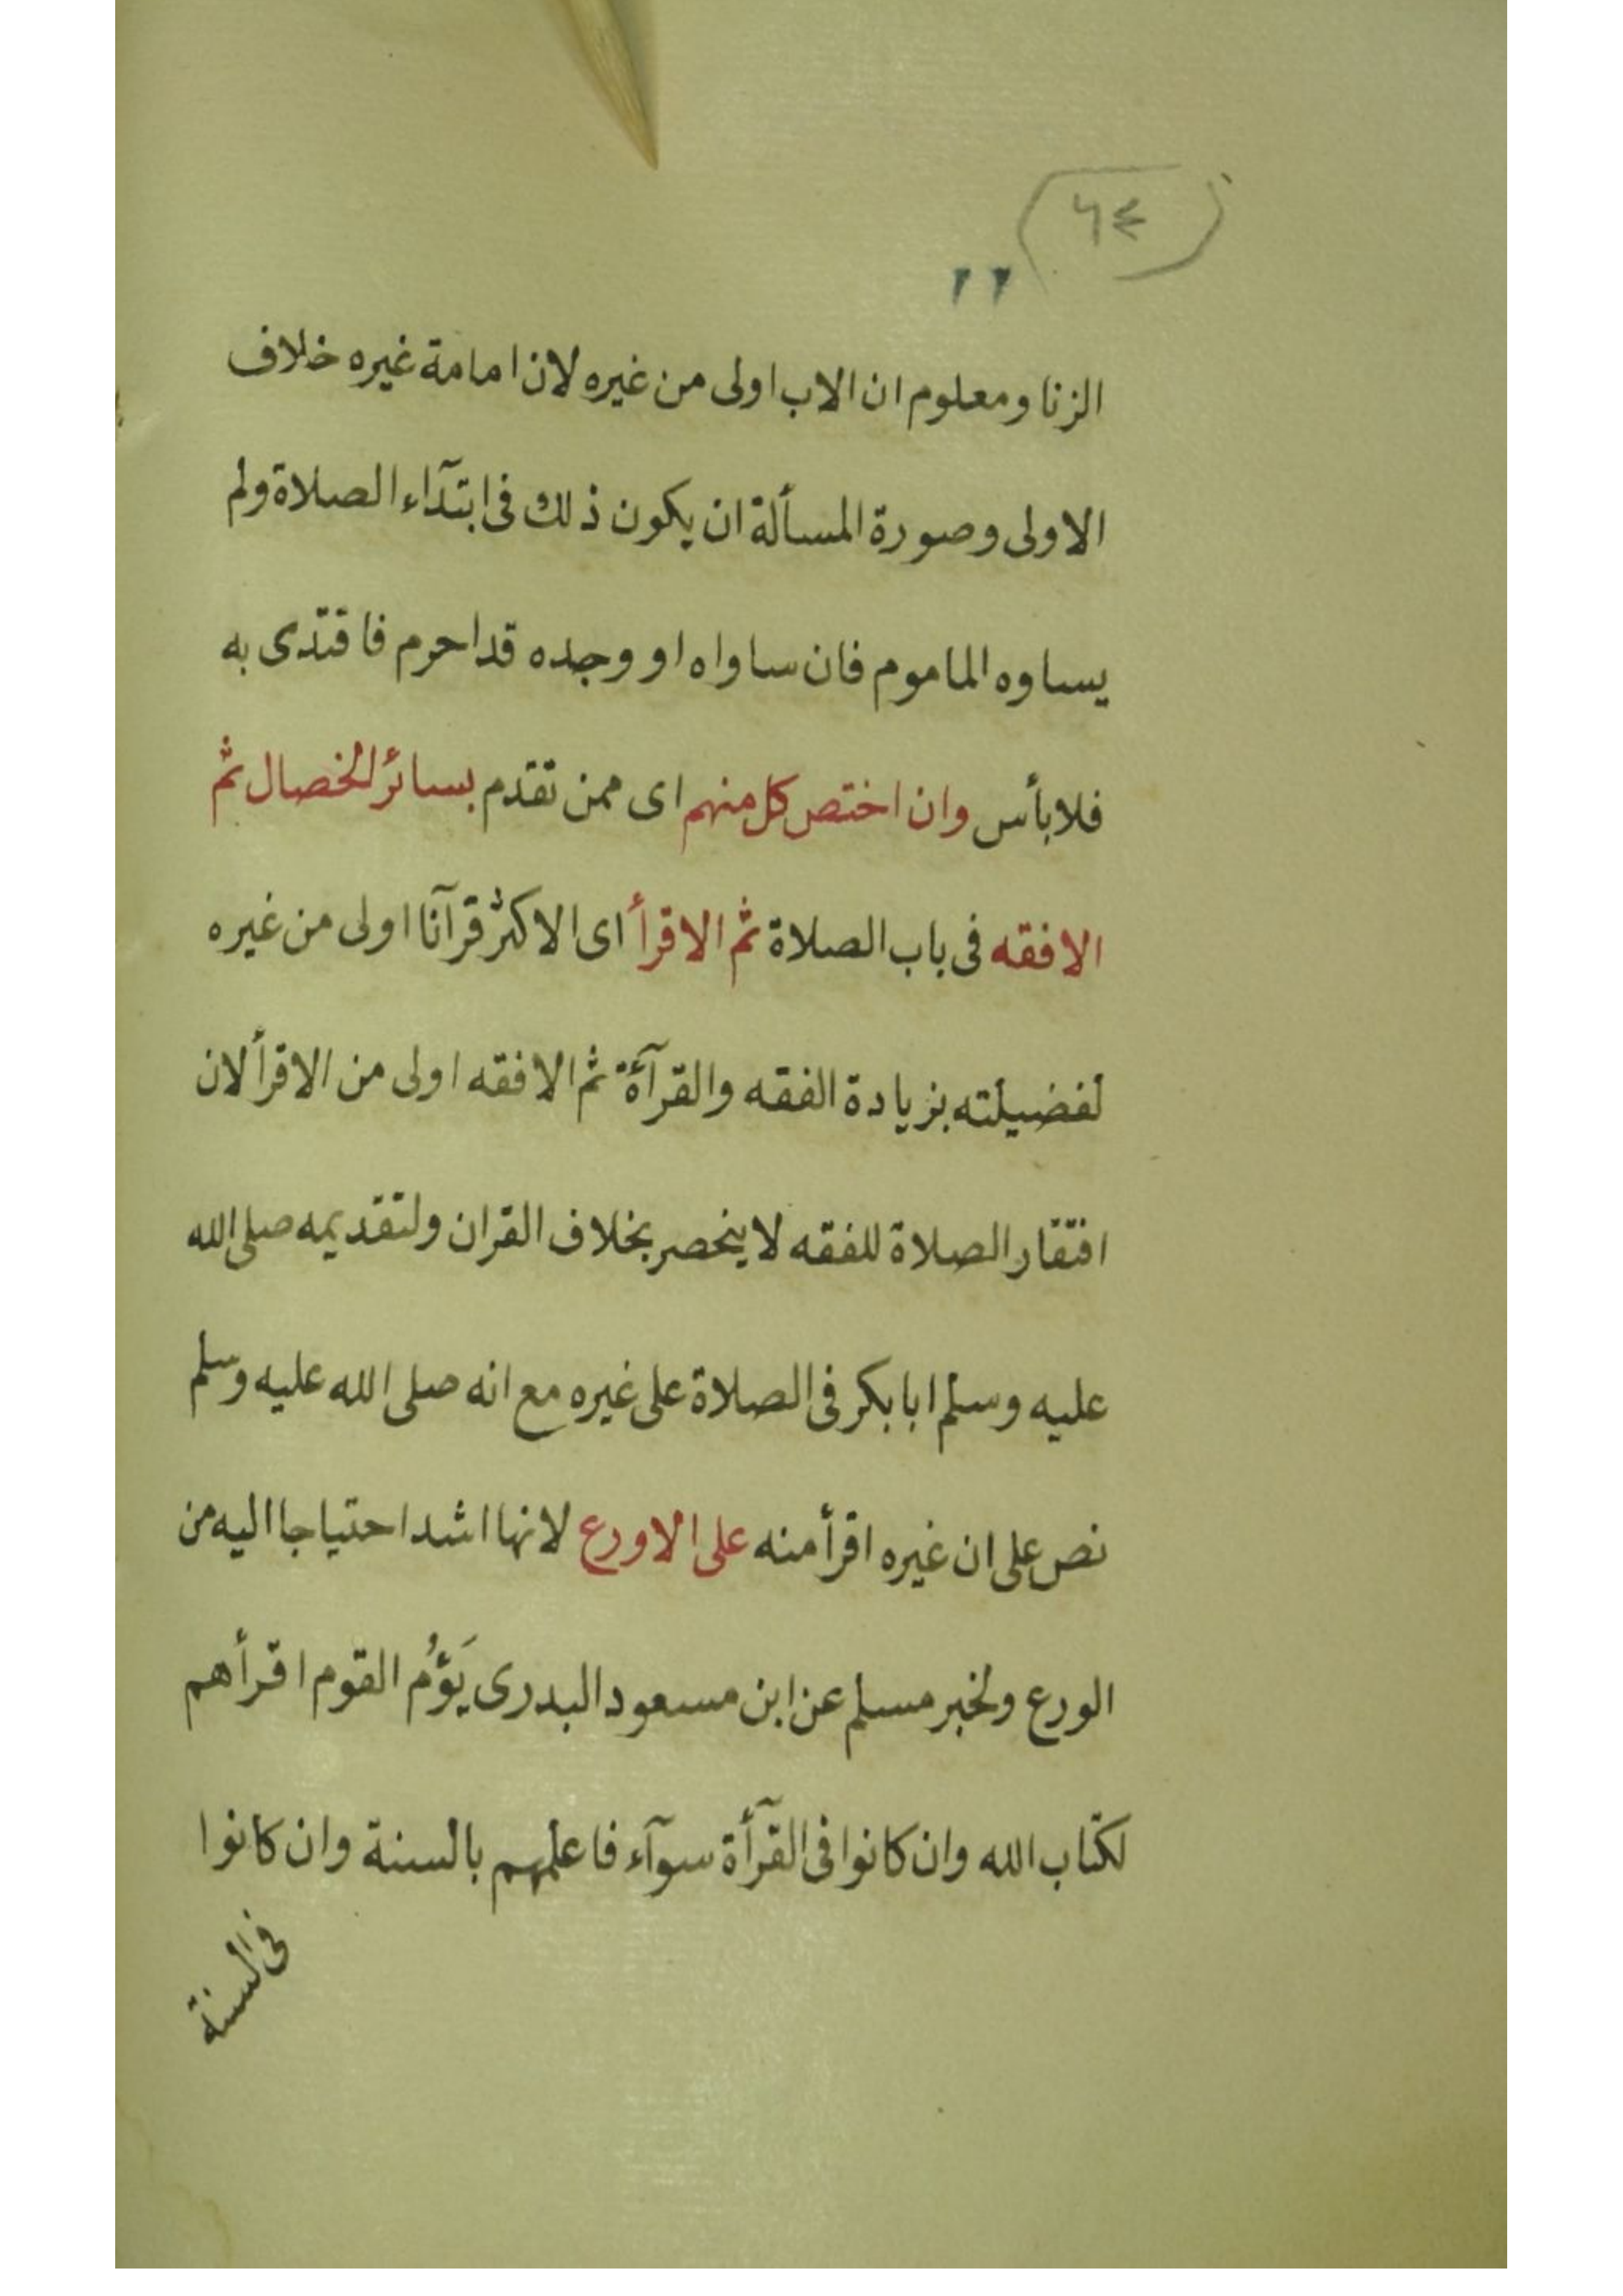 ٦٤
٢٢
الزنا ومعلوم ان الاب اولى من غيره لان امامة غيره خلاف
الاولى وصورة المسألة ان يكون ذلك فى ابتدآء الصلاة ولم
يساوه الماموم فان ساواه او وجده قد احرم فاقتدى به
فلا بأس وان اختص كل منهم اى ممن تقدم بسائر الخصال ثم
الافقه فى باب الصلاة ثم الاقرأ اى الاكثر قرآنا اولى من غيره
لفضيلته بزيادة الفقه والقرآءة ثم الافقه اولى من الاقرأ لان
افتقار الصلاة للفقه لا ينحصر بخلاف القران ولتقديمه صلى الله
عليه وسلم ابا بكر فى الصلاة على غيره مع انه صلى الله عليه وسلم
نص على ان غيره اقرأ منه على الاورع لانها اشد احتياجا اليه من
الورع ولخبر مسلم عن ابن مسعود البدرى يَؤُم القوم اقرأهم
لكتاب الله وان كانوا فى القرآأة سوآء فاعلمهم بالسنة وان كانوا
فى السنة